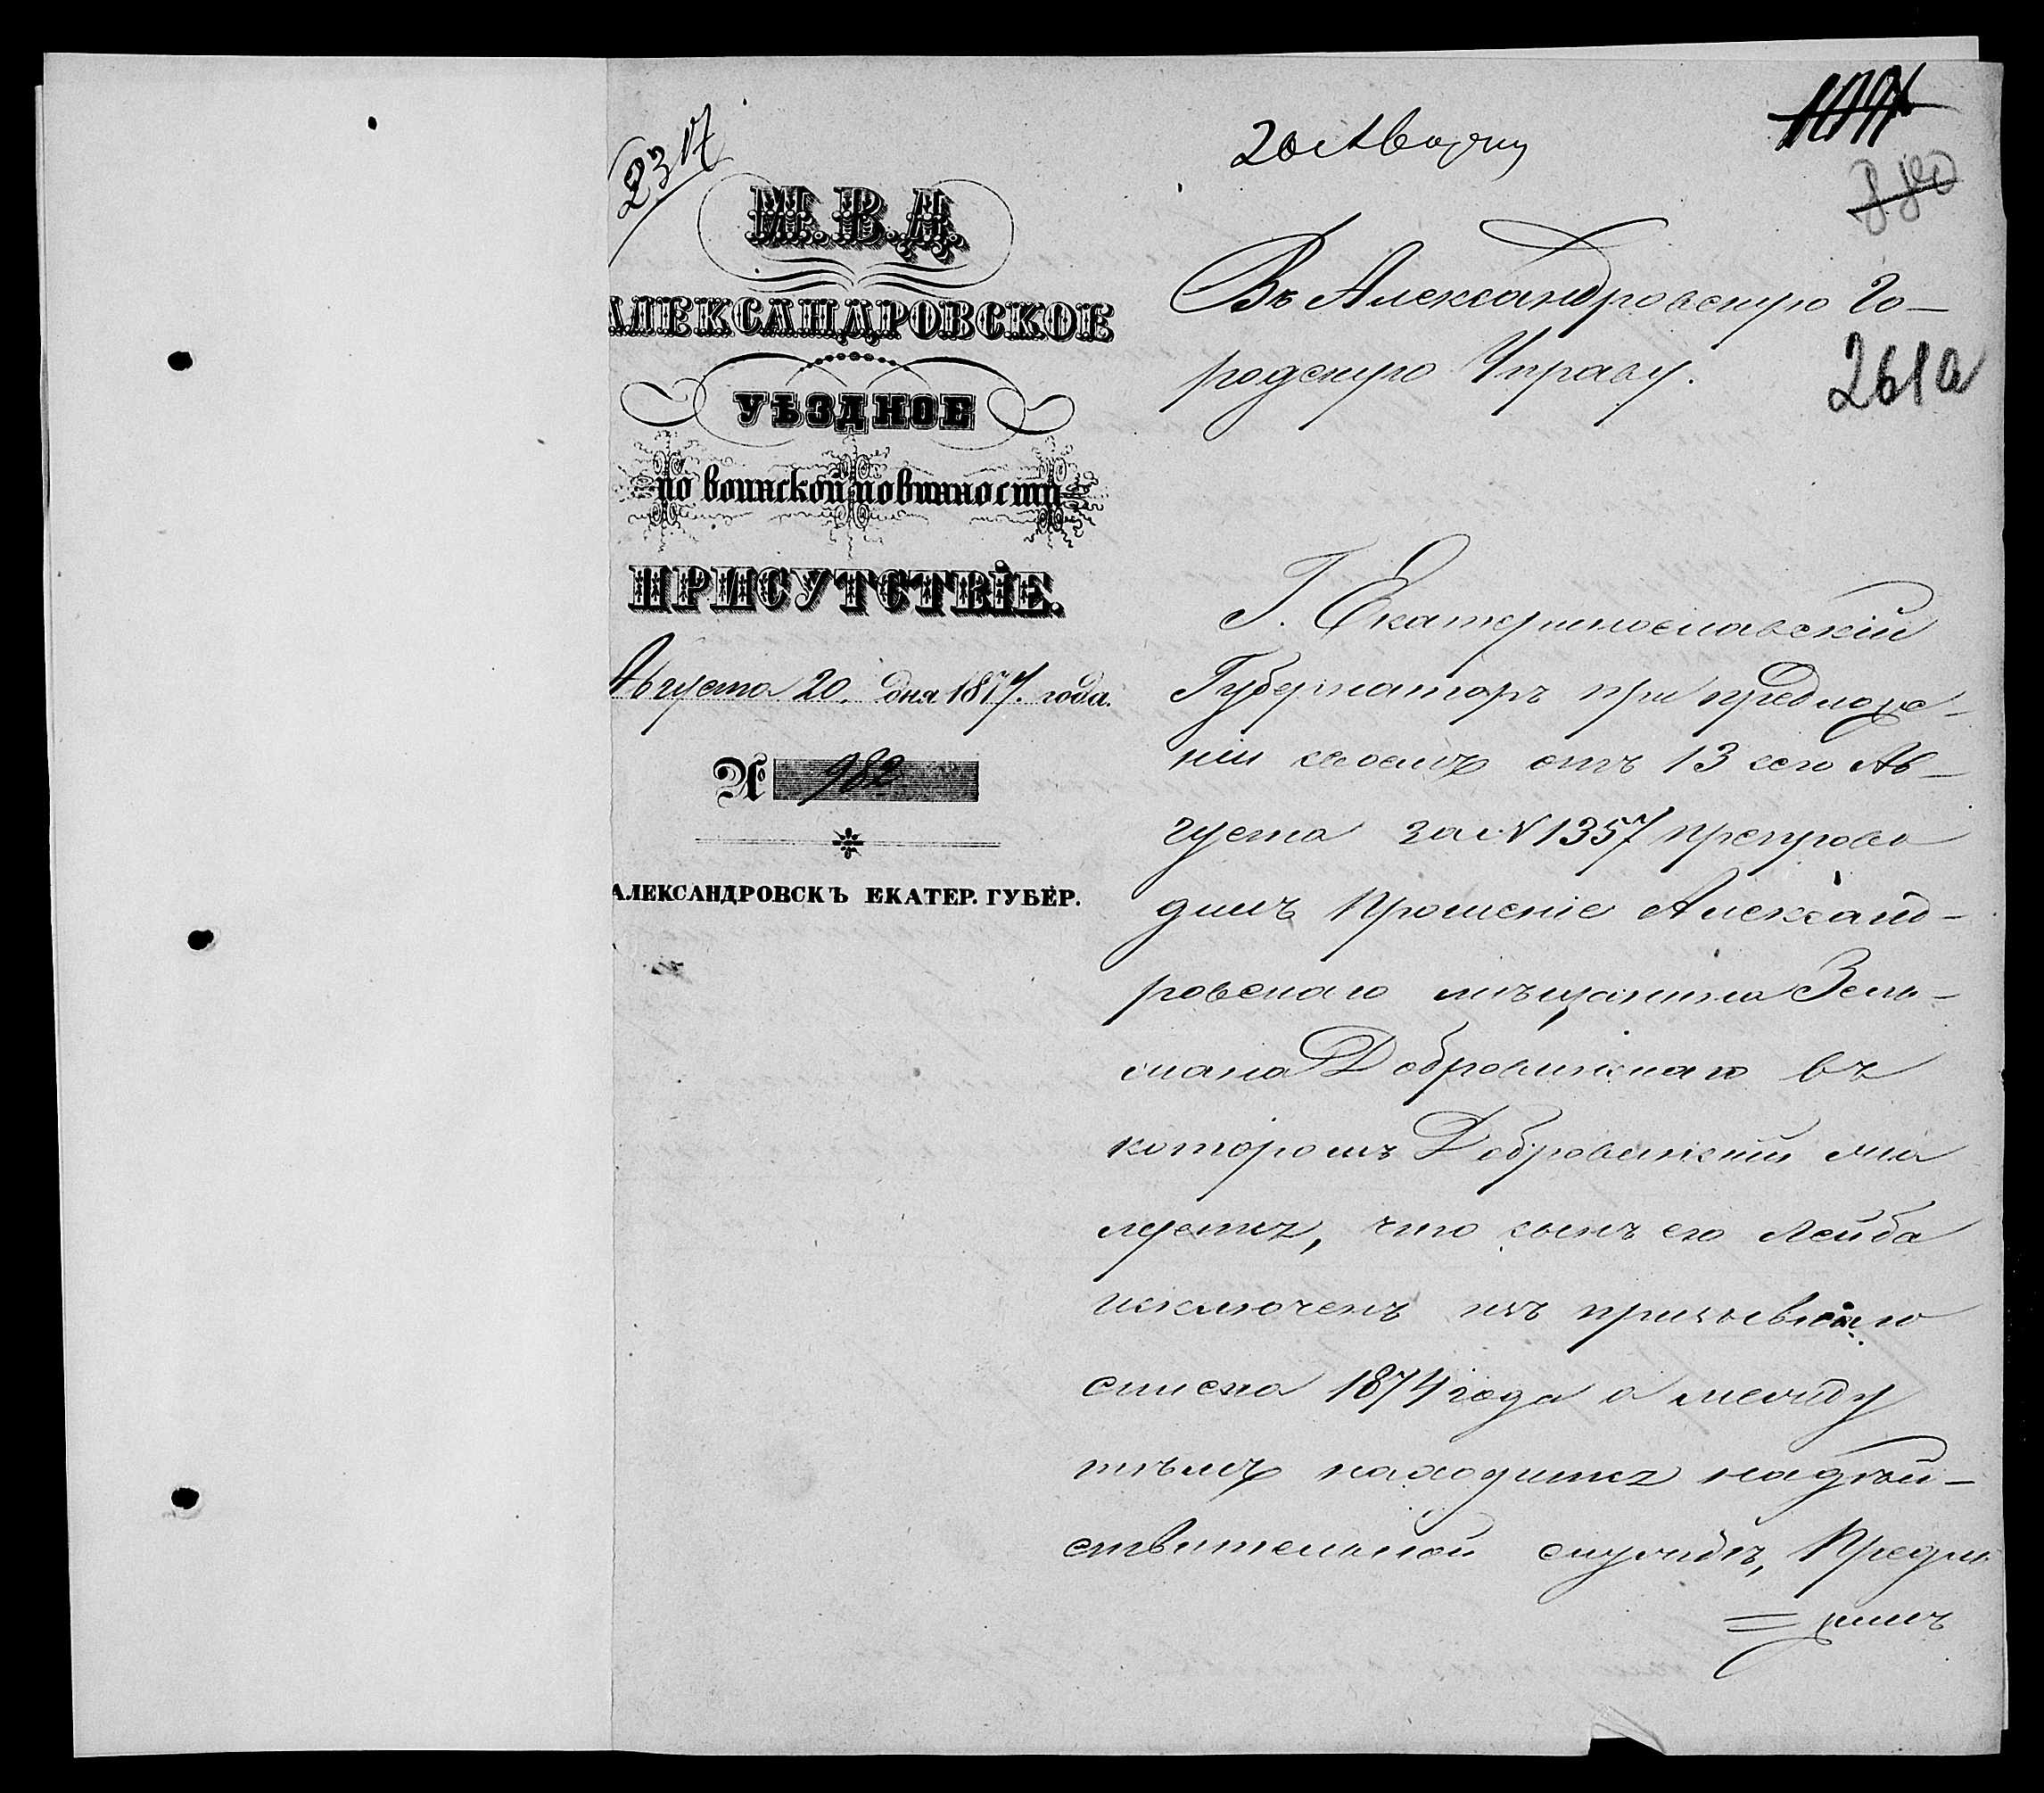 2317
20 Августа
М.В.Д.
АЛЕКСАНДРОВСКОЕ
УѢЗДНОЕ
по воинской повинности
ПРИСУТСТВІЕ.
Августа 20. дня 1877. года.
№ 982
АЛЕКСАНДРОВСКЪ ЕКАТЕР. ГУБЕР.
Въ Александровскую Го-
родскую Управу.
261а
Г. Екатеринославскій
Губернаторъ при предложе-
ніи своемъ отъ 13 сего Ав-
густа за N 1357 препрово
дилъ прошеніе Александ-
ровскаго мѣщанина Зель-
мана Добровинскаго въ
которомъ Добровинскій жа
луется, что сынъ его Лейба
исключенъ изъ призывнаго
списка 1874 года а между
тѣмъ находится на дѣй-
ствительной службѣ, Предло
= жилъ